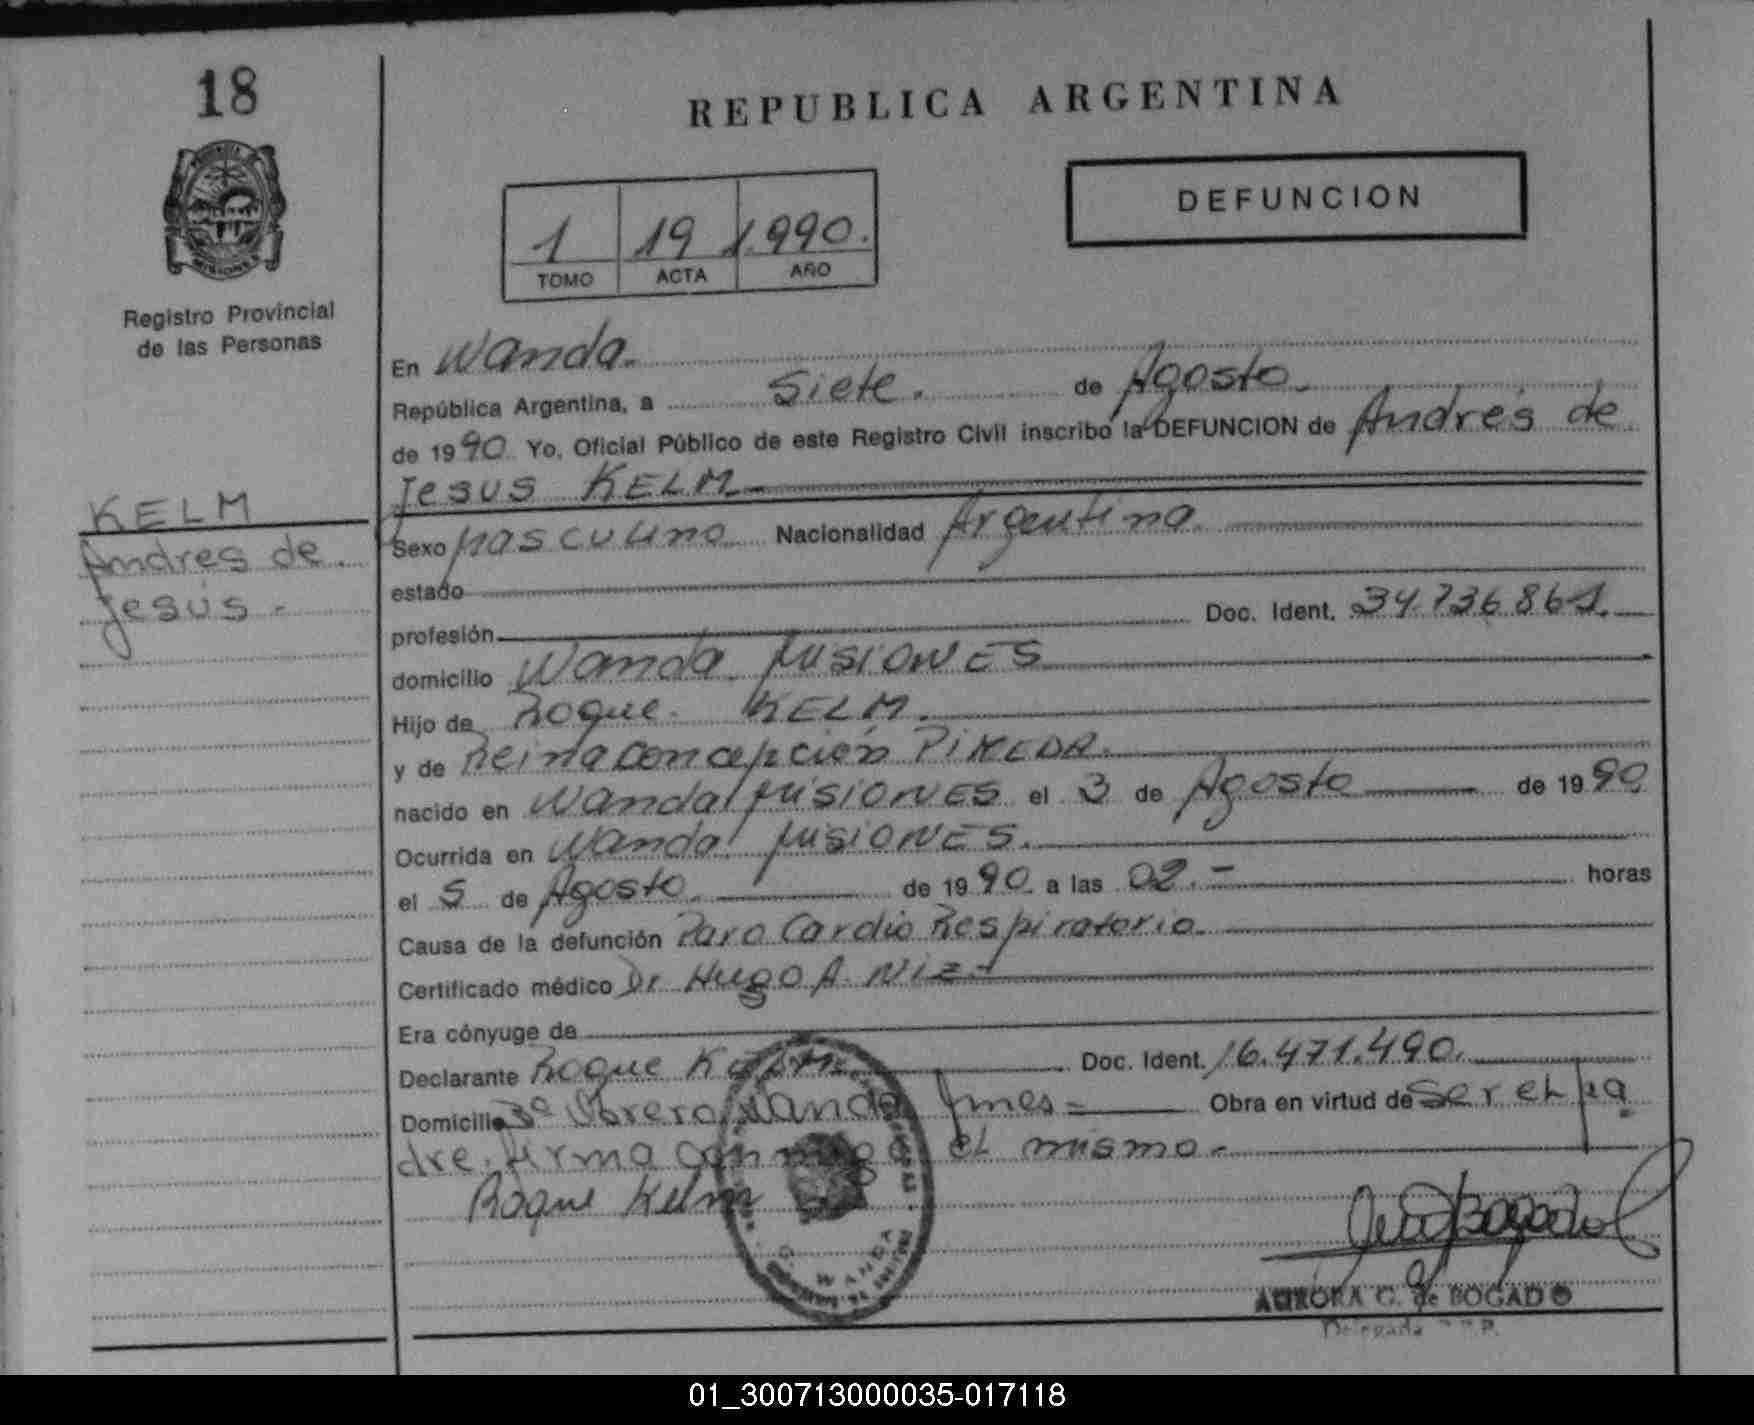 18
REPUBLICA ARGENTINA
PROVINCIA DE
MISIONES
DEFUNCION
1 19 1.990.
TOMO ACTA AÑO
Registro Provincial
de las Personas
En Wanda.
República Argentina, a Siete. de Agosto.
de 1990 Yo, Oficial Público de este Registro Civil inscribo la DEFUNCION de Andrés de
Jesus KELM
KELM
Andrés de
Jesús.-
Sexo Masculino Nacionalidad Argentina
estado
profesión Doc. Ident. 34.736.861.
domicilio Wanda MISIONES
Hijo de Roque KELM.
y de Reina Concepción PINEDA.
nacido en Wanda MISIONES el 3 de Agosto de 1990
Ocurrida en Wanda MISIONES.
el 5 de Agosto. de 1990. a las 02.- horas
Causa de la defunción Paro Cardio Respiratorio.
Certificado médico Dr Hugo A. Niz.-
Era cónyuge de
Declarante Roque KELM. Doc. Ident. 16.471.490.
Domicilio Bº Obrero Wanda Mnes- Obra en virtud de ser el pa
dre. Firma conmigo el mismo.-
Roque Kelm
WANDA
AURORA G. de BOGADO
Delegada
01_300713000035-017118